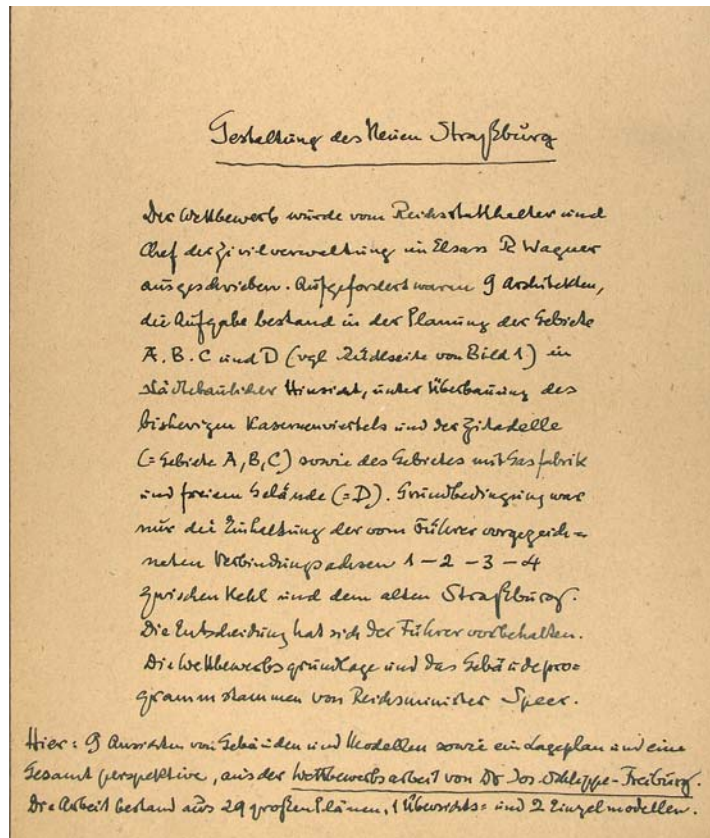 Gestaltung des Neuen Straßburg
Der Wettbewerb wurde vom Reichsstatthalter und
Chef der Zivilverwaltung im Elsass R Wagner
ausgeschrieben. Aufgefordert waren 9 Architekten,
die Aufgabe bestand in der Planung der Gebiete
A. B. C und D (vgl Rückseite von Bild 1.) in
städtebaulicher Hinsicht, unter Überbauung des
bisherigen Kasernenviertels und der Zitadelle
(= Gebiete A, B, C) sowie des Gebietes mit Gasfabrik
und freiem Gelände (= D). Grundbedingung war
nur die Einhaltung der vom Führer vorgezeich=
neten Verbindungsachsen 1 – 2 – 3 – 4
zwischen Kehl und dem alten Straßburg.
Die Entscheidung hat sich der Führer vorbehalten.
Die Wettbewerbsgrundlage und das Gebäudepro=
gramm stammen von Reichsminister Speer.
Hier: 9 Ansichten von Gebäuden und Modellen sowie ein Lageplan und eine
Gesamtperspektive, aus der Wettbewerbsarbeit von Dr Jos Schlippe-Freiburg.
Die Arbeit bestand aus 29 großen Plänen, 1 Übersichts= und 2 Einzelmodellen.